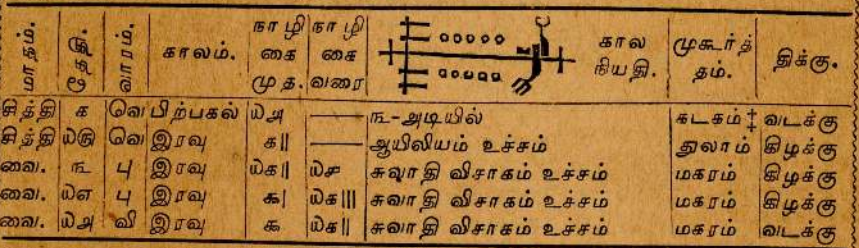 மாதம். தேதி. வாரம். காலம். நாழிகை முத. நாழிகை வரை கால நியதி. முகூர்த்தம். திக்கு.
சித்தி ௧ வெ பிற்பகல் ௰௮ —— ௩-அடியில் கடகம்‡ வடக்கு
சித்தி ௰௫ வெ இரவு ௧॥ —— ஆயிலியம் உச்சம் துலாம் கிழக்கு
வை. ௩ பு இரவு ௰௧॥ ௰௪ சுவாதி விசாகம் உச்சம் மகரம் கிழக்கு
வை. ௰௭ பு இரவு ௧| ௰௧||| சுவாதி விசாகம் உச்சம் மகரம் கிழக்கு
வை. ௰௮ வி இரவு ௧ ௰௧॥ சுவாதி விசாகம் உச்சம் மகரம் வடக்கு